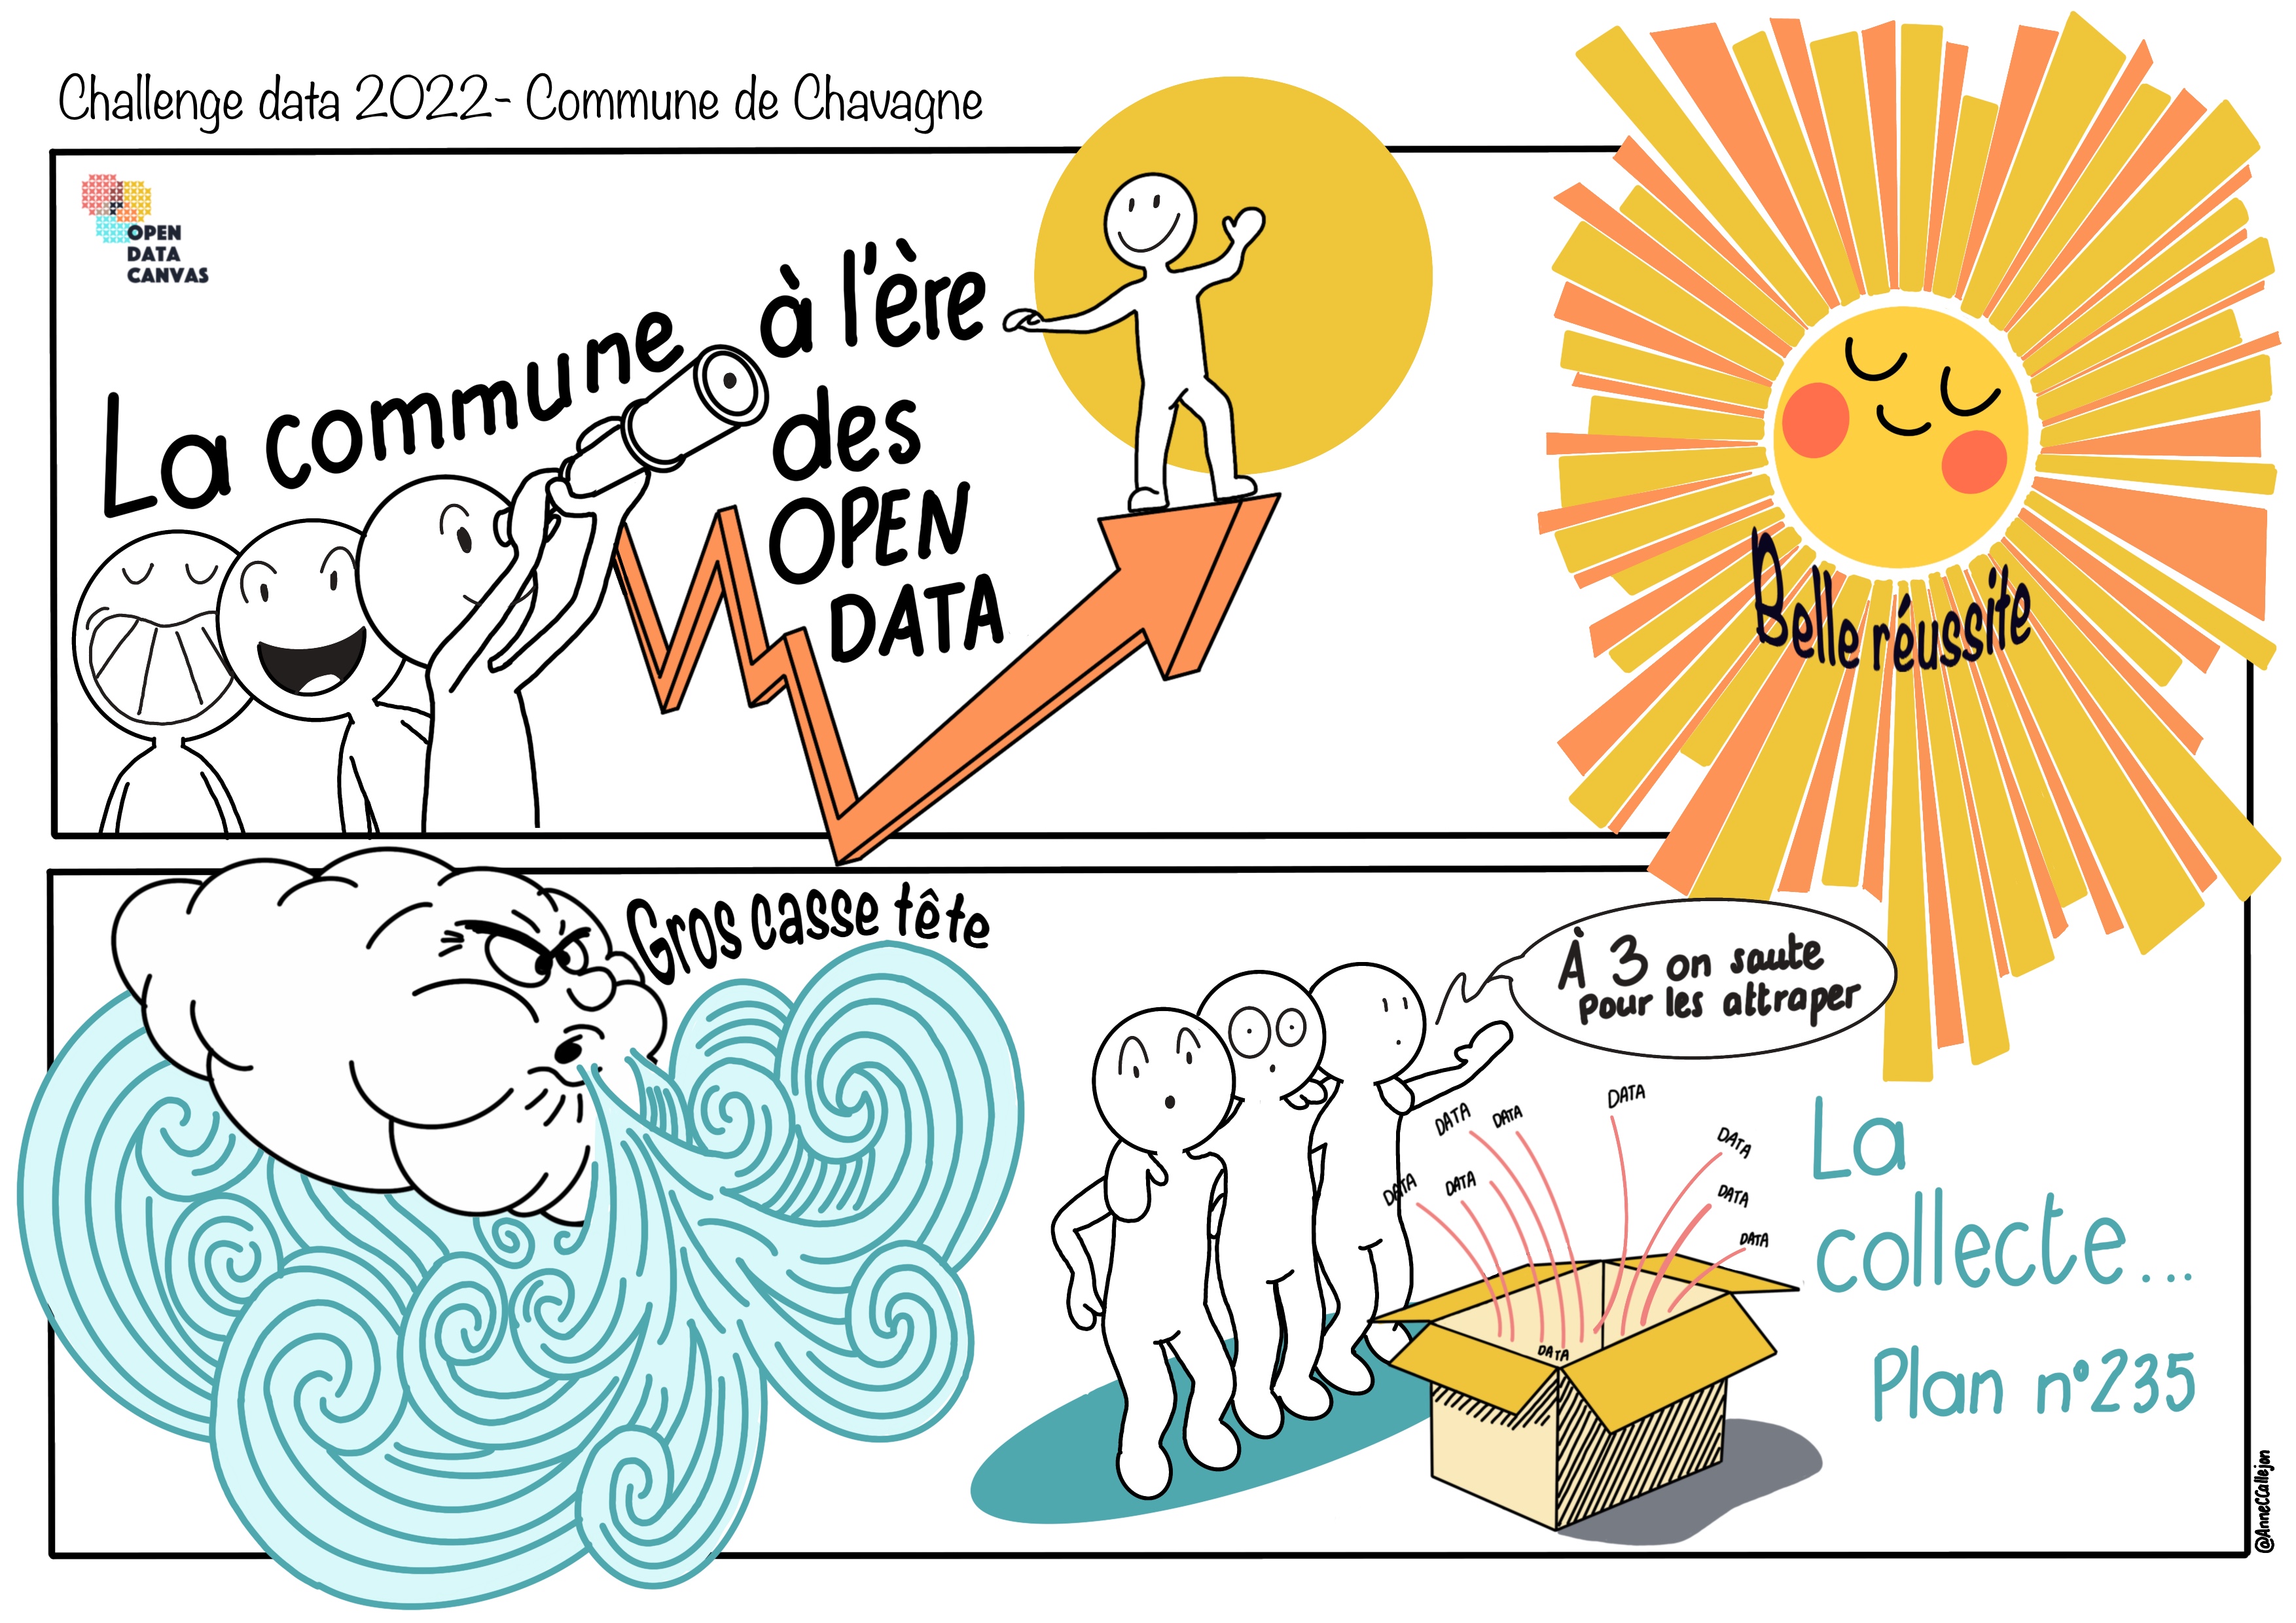 Challenge data 2022- Commune de Chavagne
OPEN
DATA
CANVAS
La commune à l'ère
des
OPEN
DATA
Belle réussite
Gros casse tête
À 3 on saute
pour les attraper
DATA
DATA
DATA
DATA
DATA
DATA
DATA
DATA
DATA
La
collecte...
Plan n°235
@AnneCCallejon